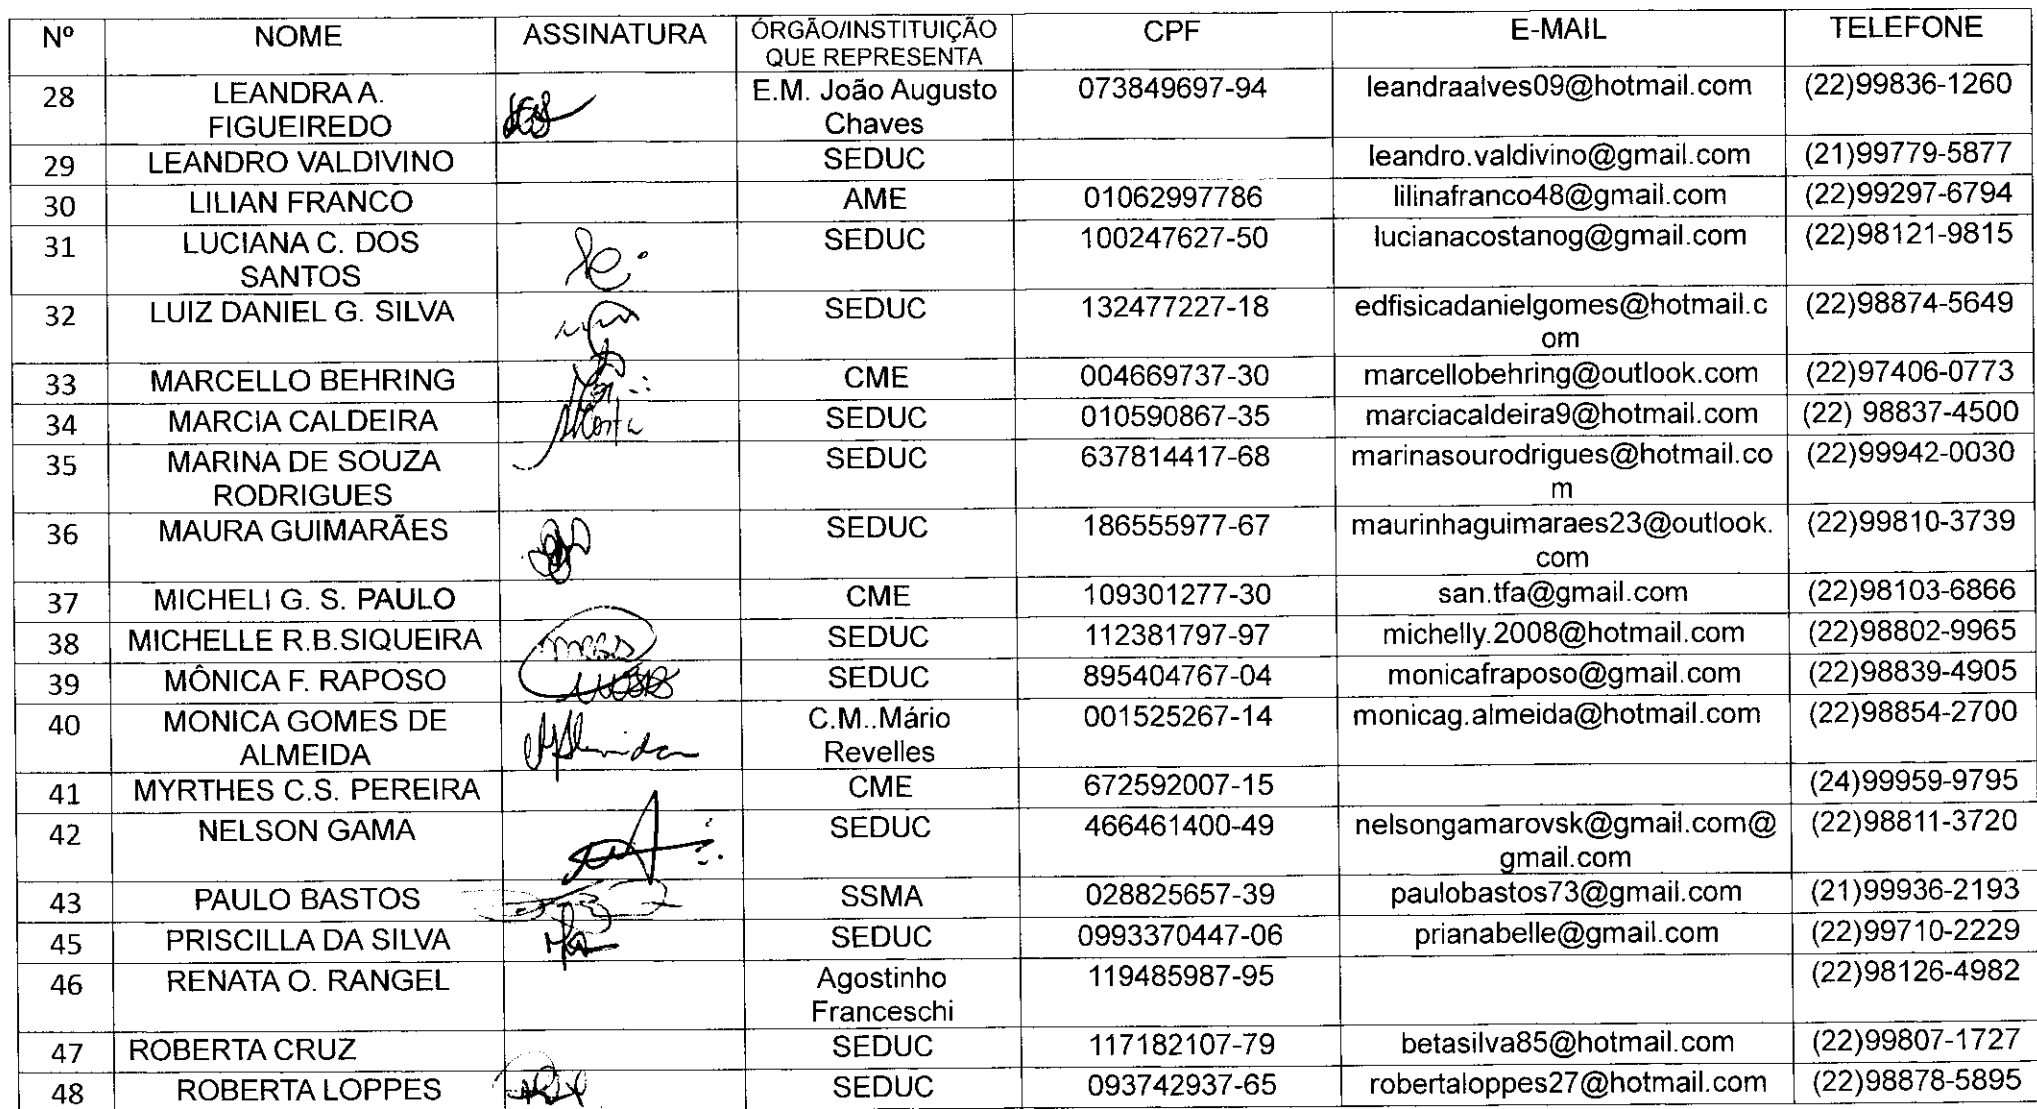 Nº NOME ASSINATURA ÓRGÃO/INSTITUIÇÃO QUE REPRESENTA CPF E-MAIL TELEFONE
28 LEANDRA A. E.M. João Augusto 073849697-94 leandraalves09@hotmail.com (22)99836-1260
FIGUEIREDO Chaves
29 LEANDRO VALDIVINO SEDUC leandro.valdivino@gmail.com (21)99779-5877
30 LILIAN FRANCO AME 01062997786 lilinafranco48@gmail.com (22)99297-6794
31 LUCIANA C. DOS SEDUC 100247627-50 lucianacostanog@gmail.com (22)98121-9815
SANTOS
32 LUIZ DANIEL G. SILVA SEDUC 132477227-18 edfisicadanielgomes@hotmail.c (22)98874-5649
om
33 MARCELLO BEHRING CME 004669737-30 marcellobehring@outlook.com (22)97406-0773
34 MARCIA CALDEIRA SEDUC 010590867-35 marciacaldeira9@hotmail.com (22) 98837-4500
35 MARINA DE SOUZA SEDUC 637814417-68 marinasourodrigues@hotmail.co (22)99942-0030
RODRIGUES m
36 MAURA GUIMARÃES SEDUC 186555977-67 maurinhaguimaraes23@outlook. (22)99810-3739
com
37 MICHELI G. S. PAULO CME 109301277-30 san.tfa@gmail.com (22)98103-6866
38 MICHELLE R.B.SIQUEIRA SEDUC 112381797-97 michelly.2008@hotmail.com (22)98802-9965
39 MÔNICA F. RAPOSO SEDUC 895404767-04 monicafraposo@gmail.com (22)98839-4905
40 MONICA GOMES DE C.M..Mário 001525267-14 monicag.almeida@hotmail.com (22)98854-2700
ALMEIDA Revelles
41 MYRTHES C.S. PEREIRA CME 672592007-15 (24)99959-9795
42 NELSON GAMA SEDUC 466461400-49 nelsongamarovsk@gmail.com@ (22)98811-3720
gmail.com
43 PAULO BASTOS SSMA 028825657-39 paulobastos73@gmail.com (21)99936-2193
45 PRISCILLA DA SILVA SEDUC 0993370447-06 prianabelle@gmail.com (22)99710-2229
46 RENATA O. RANGEL Agostinho 119485987-95 (22)98126-4982
Franceschi
47 ROBERTA CRUZ SEDUC 117182107-79 betasilva85@hotmail.com (22)99807-1727
48 ROBERTA LOPPES SEDUC 093742937-65 robertaloppes27@hotmail.com (22)98878-5895